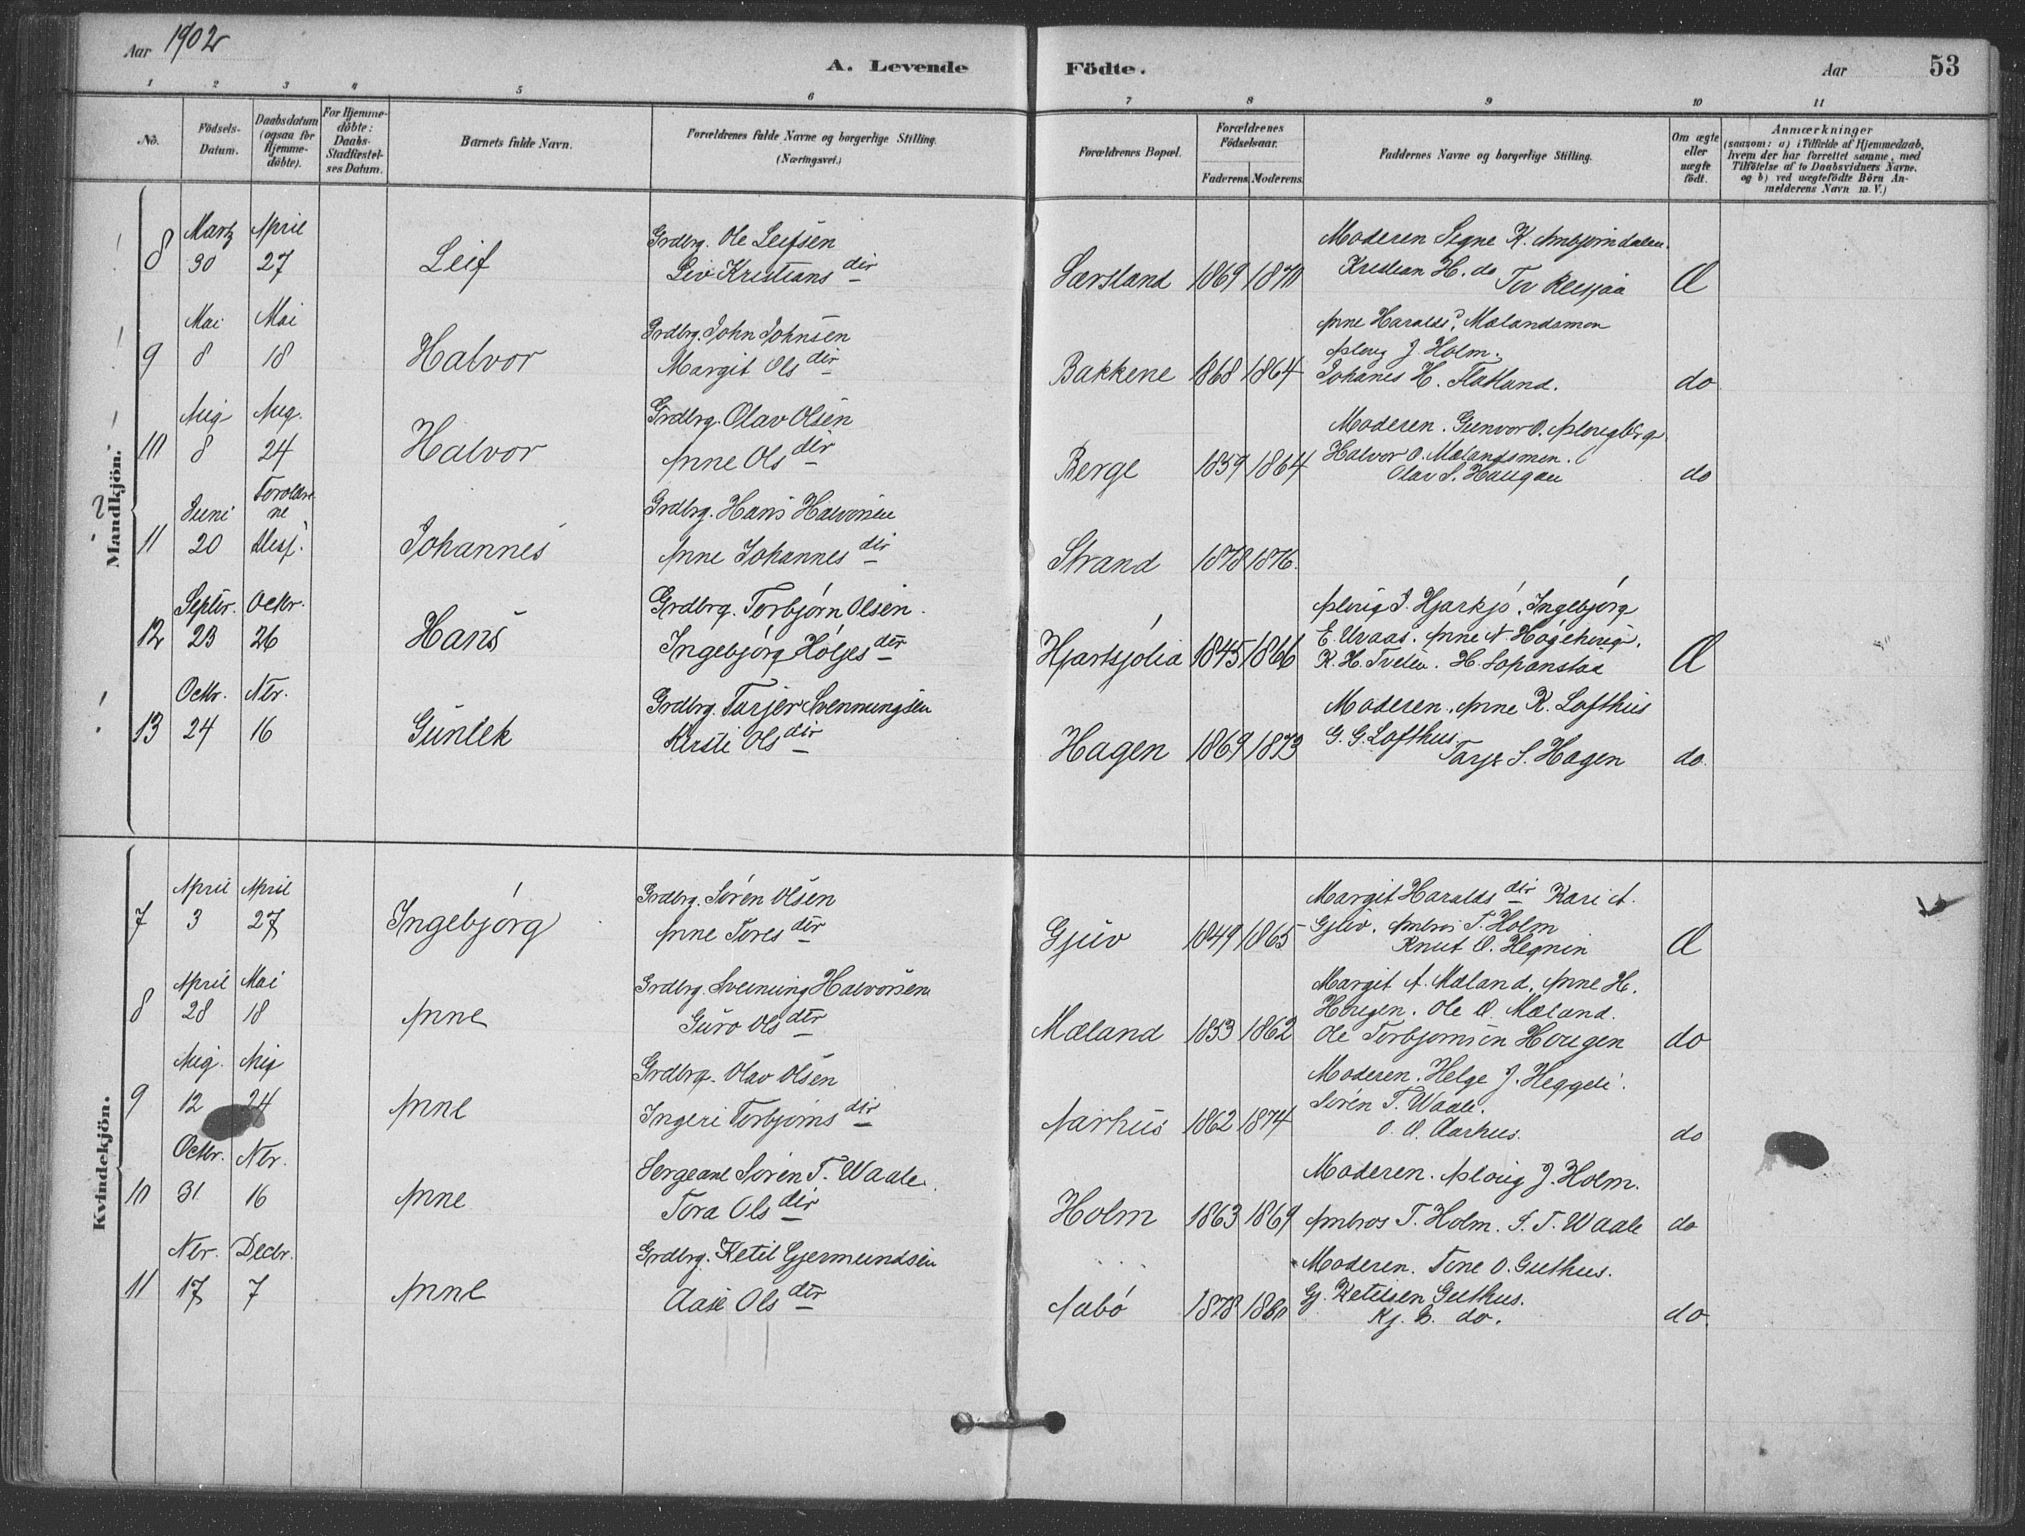 Aar 1902
A. Levende Födte.
Aar
53
1 2 3 4 5 6 7 8 9 10 11
No.
Födsels-Datum.
Daabsdatum (ogsaa for Hjemme-döbte).
For Hjemme-döbte: Daabs-Stadfæstel-ses Datum.
Barnets fulde Navn.
Forældrenes fulde Navne og borgerlige Stilling. (Næringsvei.)
Forældrenes Bopæl.
Forældrenes Födselsaar.
Faderens. Moderens.
Faddernes Navne og borgerlige Stilling.
Om ægte eller uægte födt.
Anmærkninger
(saasom: a) i Tilfælde af Hjemmedaab, hvem der har forrettet samme, med Tilföielse af to Daabsvidners Navne. og b) ved uægtefödte Börn An-melderens Navn m. V.)
Mandkjön.
8 Marts 30 April 27 Leif
Grdbrg. Ole Leifsen
Liv Kristiansdtr
1869 1870
Moderen Signe K. Ambjørndalen.
Kristian H. do
Æ
9 Mai 8 Mai 18 Halvor
Grdbrg. John Johnsen
Margit Olsdtr
Bakkene 1868 1864
Anne Haraldsd. Mælandsmon
Aslaug J. Holm.
Johanes H. Flatland.
do
10 Aug 8 Aug. 24 Halvor
Grdbrg. Olav Olsen
Anne Olsdtr
Berge 1859 1864
Moderen. Gunvor O.
Halvor O. Mælandsmon.
Olav S. Haugan
do
11 Juni 20 Johannes
Grdbrg. Hans Halvorsen
Anne Johannesdtr
Strand 1878 1876.
12 Septbr. 23 Octbr. 26 Hans
Grdbrg. Torbjørn Olsen.
Ingebjørg Høljesdtr
Hjartsjølia 1845 1866
Aslaug J. Hjartsjø. Ingebjørg
E. Uvaas. Anne N.
K. H. Tveten. H.
Æ
13 Octbr. 24 Nbr. 16 Gunlek
Grdbrg. Tarjer Svenningsen
Kirsti Olsdtr
Hagen 1869 1873
Moderen. Anne K. Lofthus
G. G. Lofthus.
Tarje S. Hagen
do.
Kvindekjön.
7 April 3 April 27 Ingebjørg
Grdbrg. Søren Olsen
Anne Toresdtr
Gjuv 1849 1865
Margit Haraldsdtr Kari A.
Gjuv. Ambros T. Holm
Knut O. Hegnin
Æ
8 April 28 Mai 18 Anne
Grdbrg. Sveinung Halvorsen
Guro Olsdtr
Mæland 1853 1862
Margit A. Mæland. Anne H.
Haugen. Ole O. Mæland.
Ole Torbjørnsen Haugen
do
9 Aug. 12 Aug 24 Anne
Grdbrg. Olav Olsen
Ingeri Torbjørnsdtr
Aarhus 1862 1874
Moderen. Helge J. Heggeli.
Søren T. Waale.
O. O. Aarhus.
do
10 Octbr. 31 Nbr. 16 Anne
Sergeant Søren T. Waale.
Tora Olsdtr
Holm 1863 1869
Moderen. Aslaug J. Holm.
Ambros T. Holm. S. T. Waale
do
11 Nbr. 17 Decbr. 7 Anne
Grdbrg. Ketil Gjermundsen
Aase Olsdtr
Aabø 1878 1880
Moderen. Tone O. Guthus.
Gj. Ketilsen Guthus.
Kj. G. do.
do.